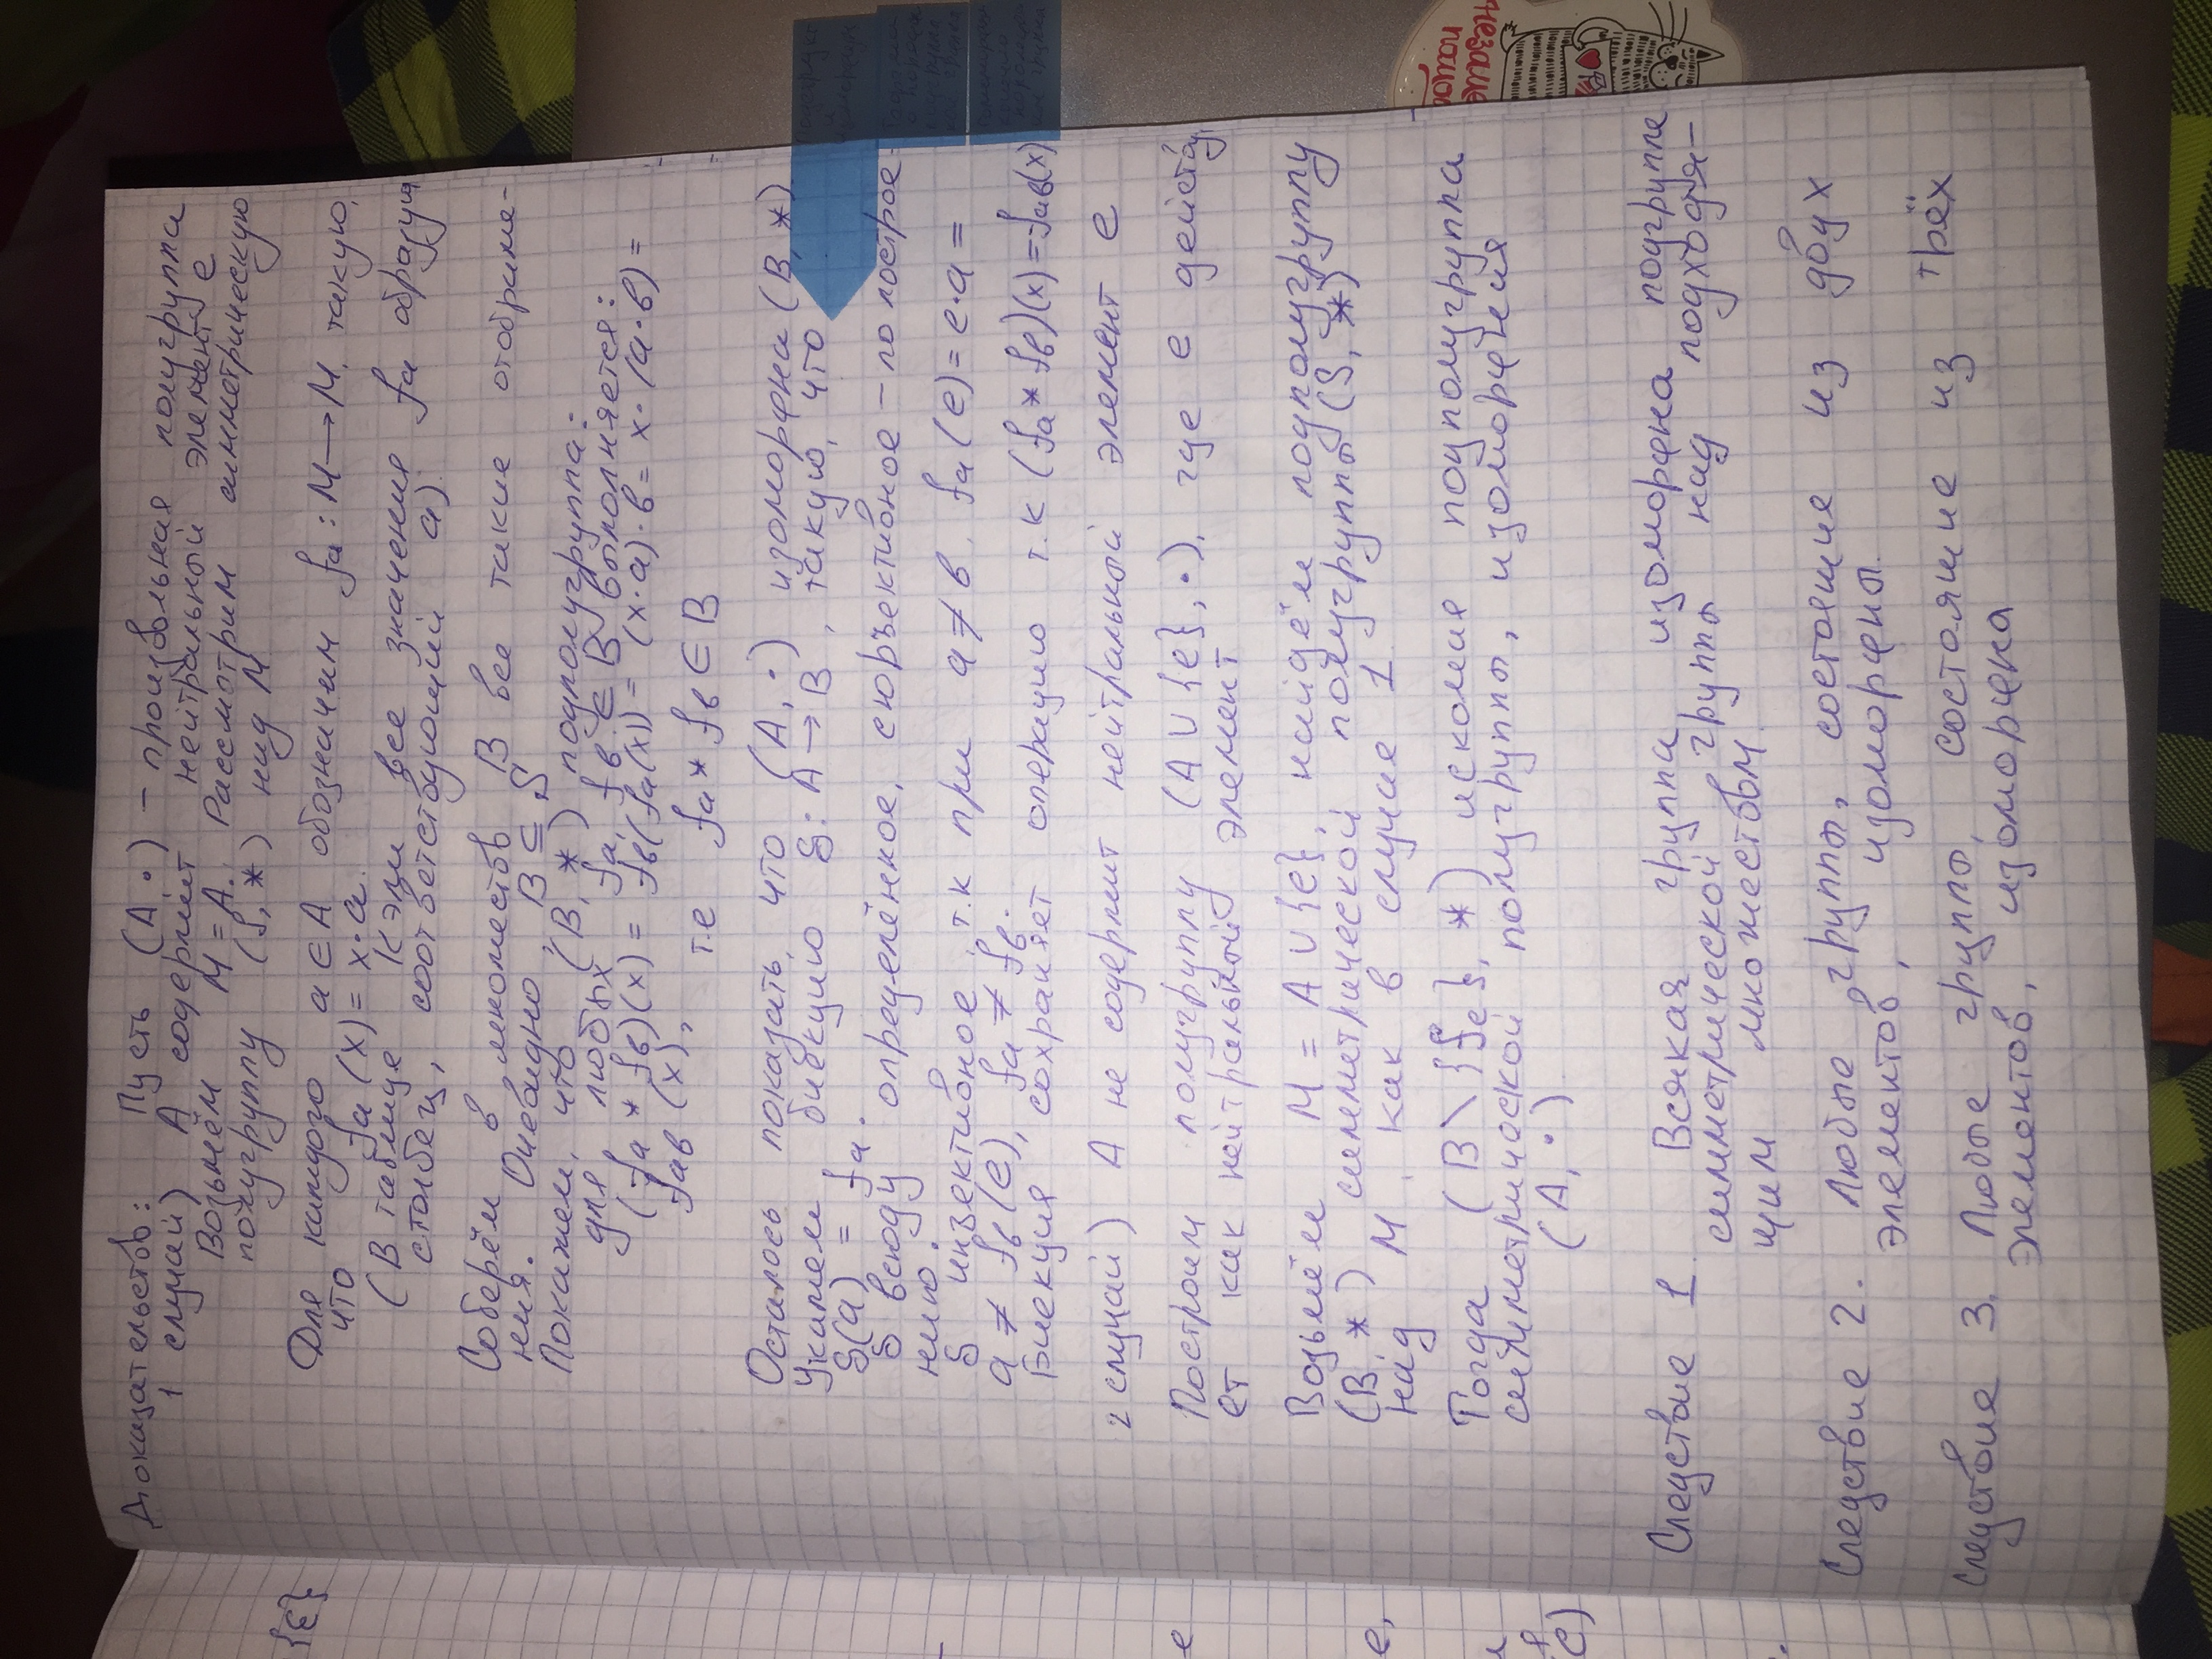 Доказательств: Пусть (A, •) – произвольная полугруппа
1 случай) A содержит нейтральный элемент e
Возьмём M = A. Рассмотрим симметрическую
полугруппу (S, *) над M
Для каждого a ∈ A обозначим fa : M → M, такую,
что fa (x) = x • a.
(В таблице Кэли все значения fa образуя
столбец, соответствующий a).
Соберём в множеств B все такие отображе-
ния. Очевидно, B ⊆ S
Покажем, что (B, *) подполугруппа:
для любых fa, fb ∈ B выполняется:
(fa * fb)(x) = fb(fa(x)) = (x•a)•b = x•(a•b) =
fab (x),
т.е fa * fb ∈ B
Осталось показать, что (A, •) изоморфна (B, *).
Укажем, биекцию δ: A → B, такую, что
δ(a) = fa.
δ всюду определённое, сюръективное – по построе-
нию.
δ инъективное, т.к при a ≠ b, fa(e) = e•a =
a ≠ fb(e), fa ≠ fb.
Биекция сохраняет операцию т.к (fa * fb)(x) = fab(x)
2 случай) A не содержит нейтральный элемент e
Построим полугруппу (A ∪ {e}, •), где e действу
ет как нейтральный элемент
Возьмём M = A ∪ {e}, найдём подполугруппу
(B, *) симметрической полугруппы (S, *)
над M, как в случае 1
Тогда (B \ {fe}, *) искомая подполугруппа
симметрической полугруппы, изоморфная
(A, •)
Следствие 1. Всякая группа изоморфна подгруппе
симметрической группы над подходя-
щим множеством.
Следствие 2. Любые группы, состоящие из двух
элементов, изоморфны.
Следствие 3. Любые группы, состоящие из трёх
элементов, изоморфна
{ε}
e
e,
e)